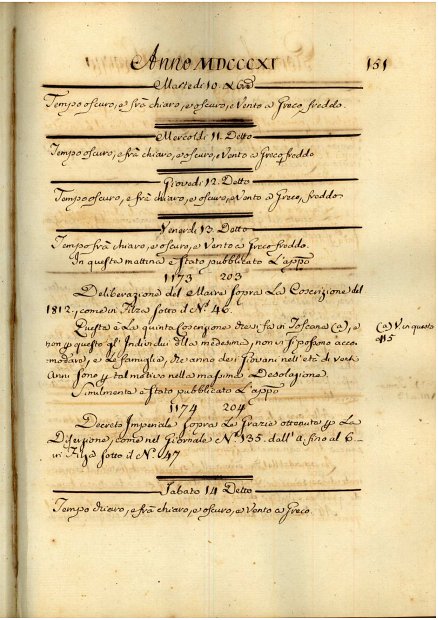 Anno MDCCCXI 151
Martedi 10. Xbre
Tempo oscuro, e frà chiaro, e oscuro, e Vento a Greco freddo.
Mercoldi 11. Detto
Tempo oscuro, e frà chiaro, e oscuro, e Vento a Greco freddo
Giovedi 12. Detto
Tempo oscuro, e frà chiaro, e oscuro, e Vento a Greco, freddo.
Venerdi 13. Detto
Tempo frà chiaro, e oscuro, e Vento a Greco freddo.
In questa mattina è stato pubblicato L'app.o
1173 203
Deliberazione del Maire sopra La Coscrizione del
1812, come in Filza sotto il N.o 46.
Questa è La quinta Coscrizione che si fà in Toscana (a), e (a) V in questo
non p questo gl' Individui della medesima, non si possano acco- a 115
modarvi, e Le famiglie, che anno dei Giovani nell'età di venti
Anni sono p tal motivo nella massima Desolazione.
Similmente è stato pubblicato L'app.o
1174 204
Decreto Imperiale sopra Le Grazie ottenute p La
Diserzione, come nel Giornale N.o 135. dall' a fino al 6.
in Filza sotto il N.o 47
Sabato 14 Detto
Tempo chiaro, e frà chiaro, e oscuro, e Vento a Greco.